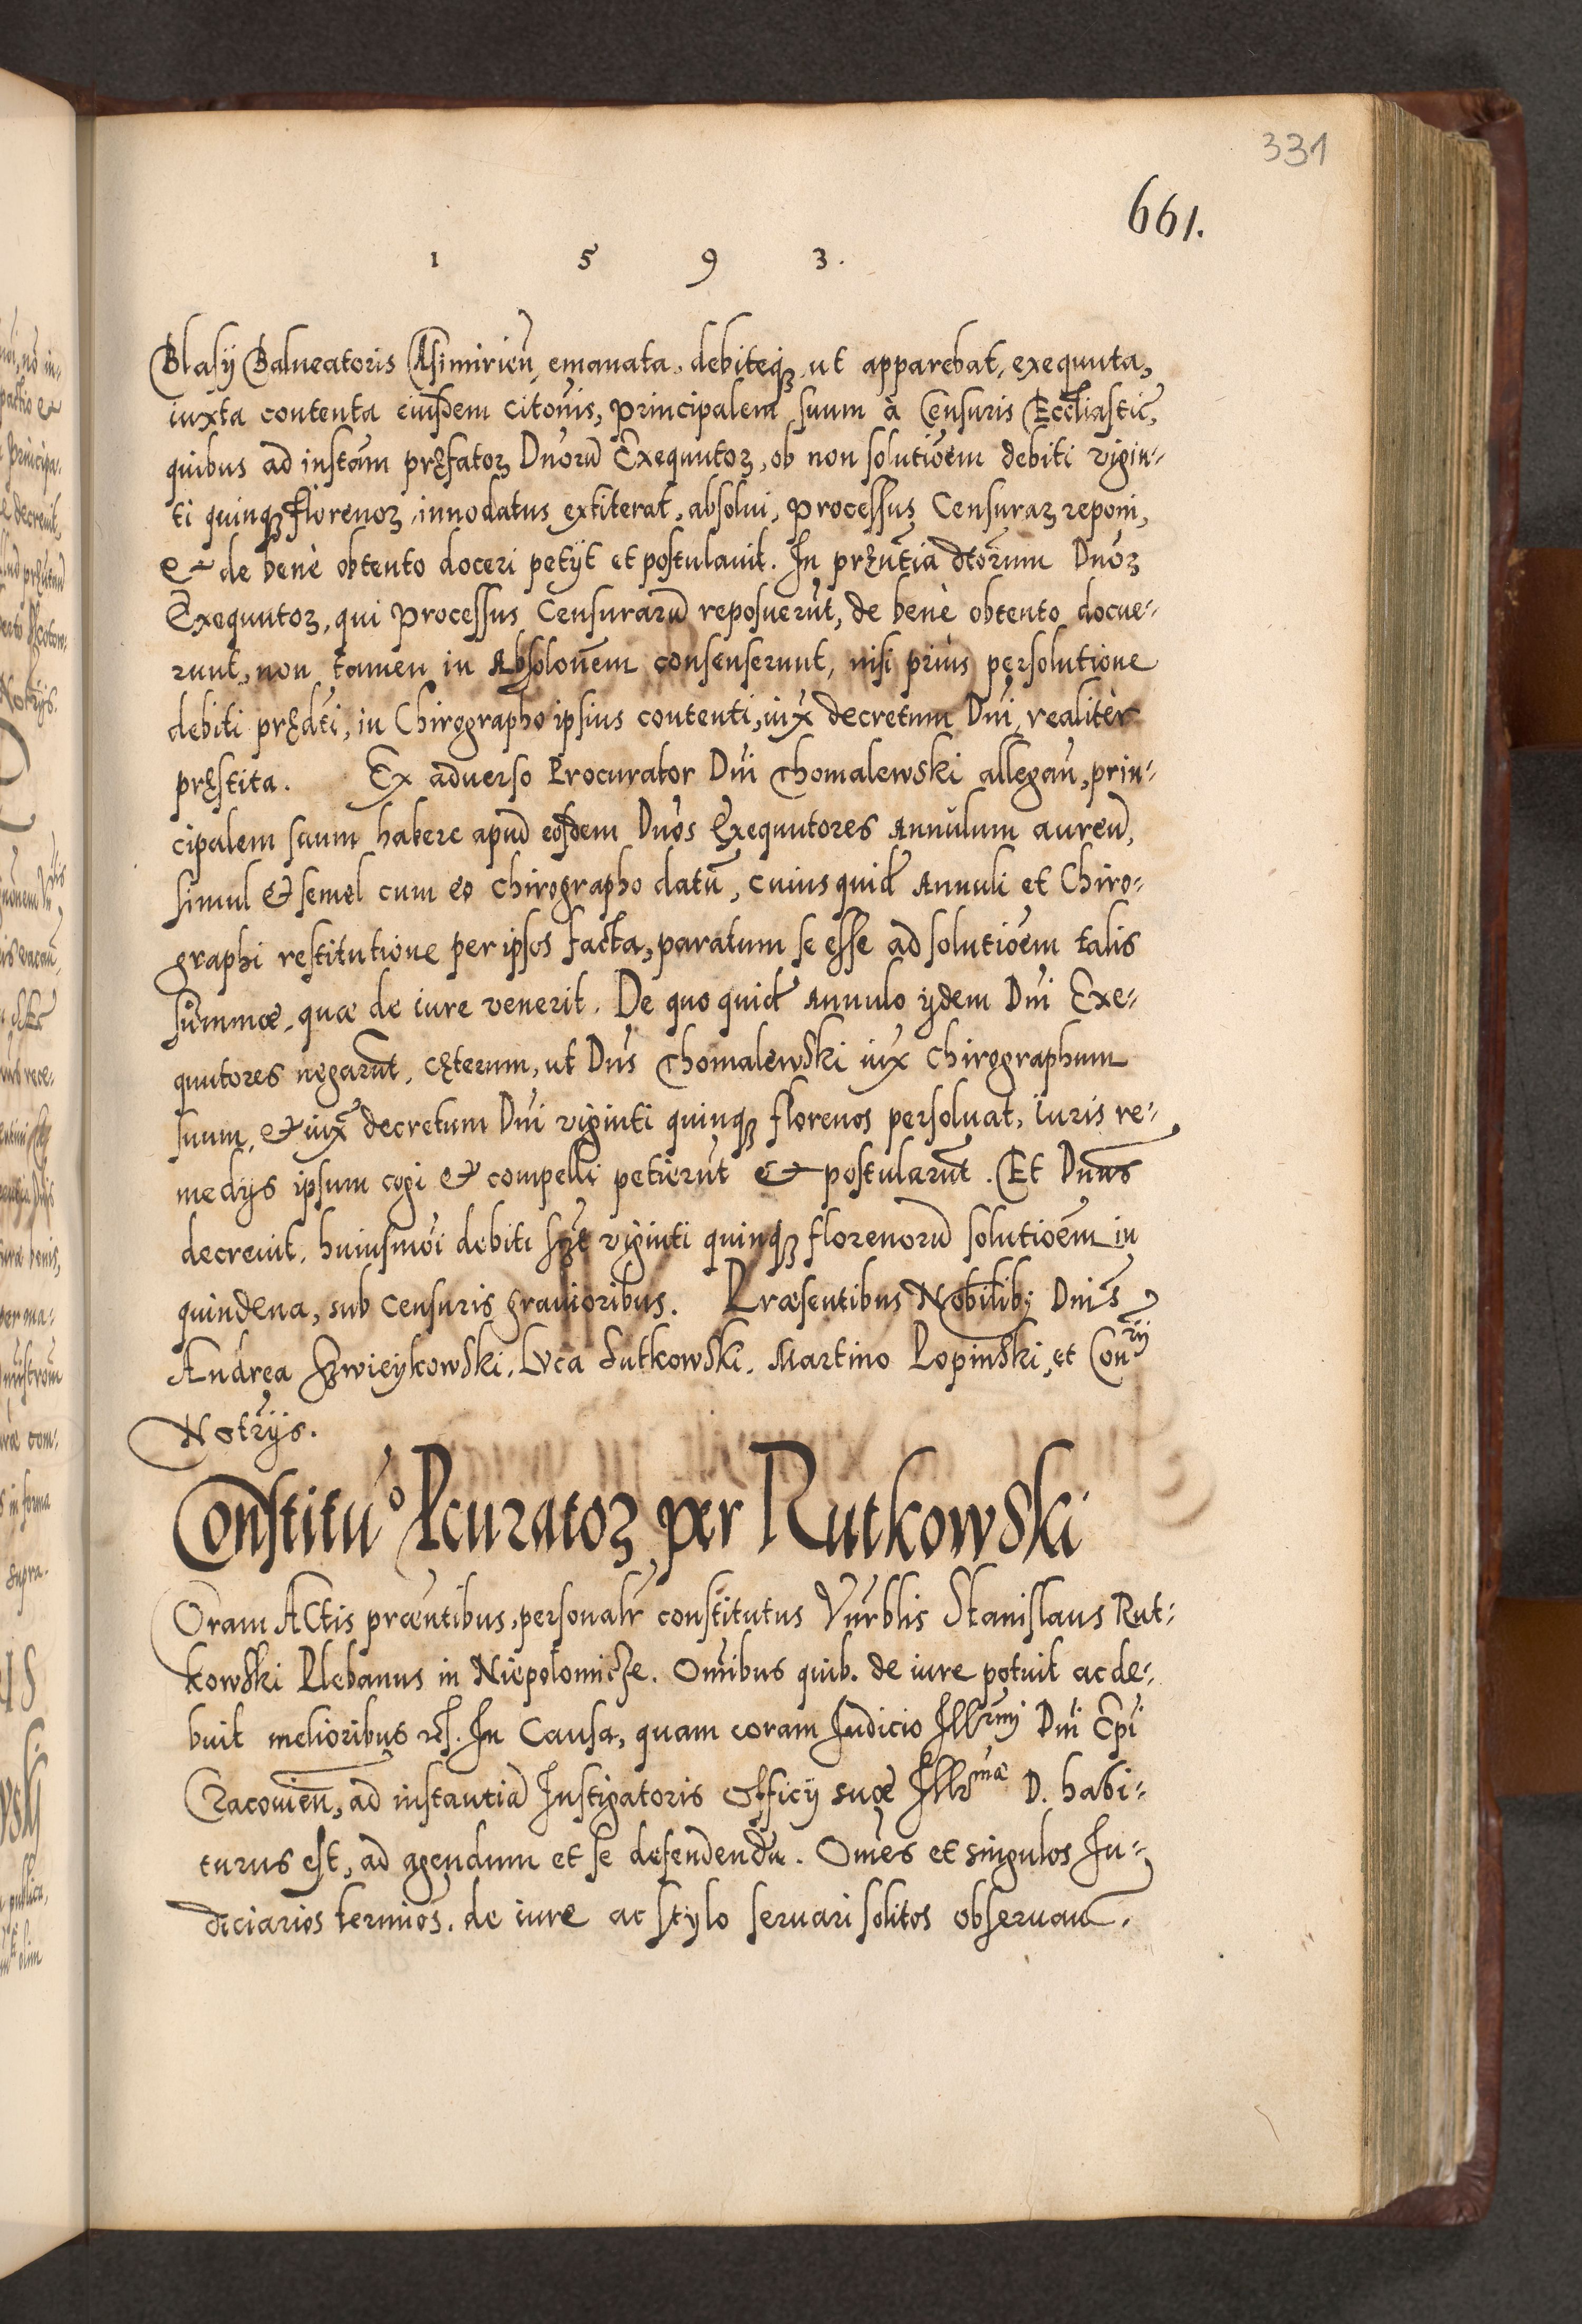 331
661.
1 5 9 3.
Blasij Balneatoris Casimirien̄, emanata, debiteqꝫ, ut apparebat, exequuta,
iuxta contenta eiusdem citōnis, principalem suum à Censuris Ecclīastic̄,
quibus ad instām pręfatoꝝ Dnōrū Exequutoꝝ, ob non solutiōem debiti vigin-
ti quinqꝫ florenoꝝ, innodatus extiterat, absolui, processus Censuraꝝ reponi,
et de benè obtento doceri petÿt et postulauit. In pręn̄tia dtōrum Dnōꝝ
Exequutoꝝ, qui processus Censurarū reposuerūt, de benè obtento docue-
runt, non tamen in Absolōnem consenserunt, nisi prius persolutione
debiti prędti, in Chirographo ipsius contenti, iux̄ decretum Dnī, realitèr
pręstita. Ex aduerso Procurator Dnī Chomalewski allegaū, prin-
cipalem suum habere apud eosdem Dnōs Exequutores Annulum aureū,
simul et semel cum eo chirographo datū, cuius quid̄ Annuli et Chiro-
graphi restitutione per ipsos facta, paratum se esse ad solutiōem talis
summæ, quæ de iure venerit. De quo quid̄ Annulo ijdem Dnī Exe-
quutores negarūt, cęterum, ut Dnūs Chomalewski iux̄ chirographum
suum, et iux̄ decretum Dnī viginti quinqꝫ florenos persoluat, iuris re-
medijs ipsum cogi et compelli petierūt et postularūt. Et Dnūs
decreuit, huiusmōi debiti viginti quinqꝫ florenorū solutiōem in
quindena, sub censuris grauioribus. Præsentibus Nobilibꝫ Dnīs
Andrea Luca Sutkowski, Martino Lopinski, et Con^rij
Notrījs.
Constitū^o Pcuratoꝝ per Rutkowski
Coram Actis præn̄tibus, personalr̄ constitutus Vn̄rblis Stanislaus Rut-
kowski Plebanus in Niepolomicze. Omībus quib. de iure potuit ac de-
buit melioribus In Causa, quam coram Judicio Ill^rmi Dnī Epī
Cracouien̄, ad instantiā Instigatoris Officij suæ Ill^mæ D. habi-
turus est, ad agendum et se defendendū. Omēs et singulos Ju-
diciarios termīos, de iure ac stylo seruari solitos obseruan̄.